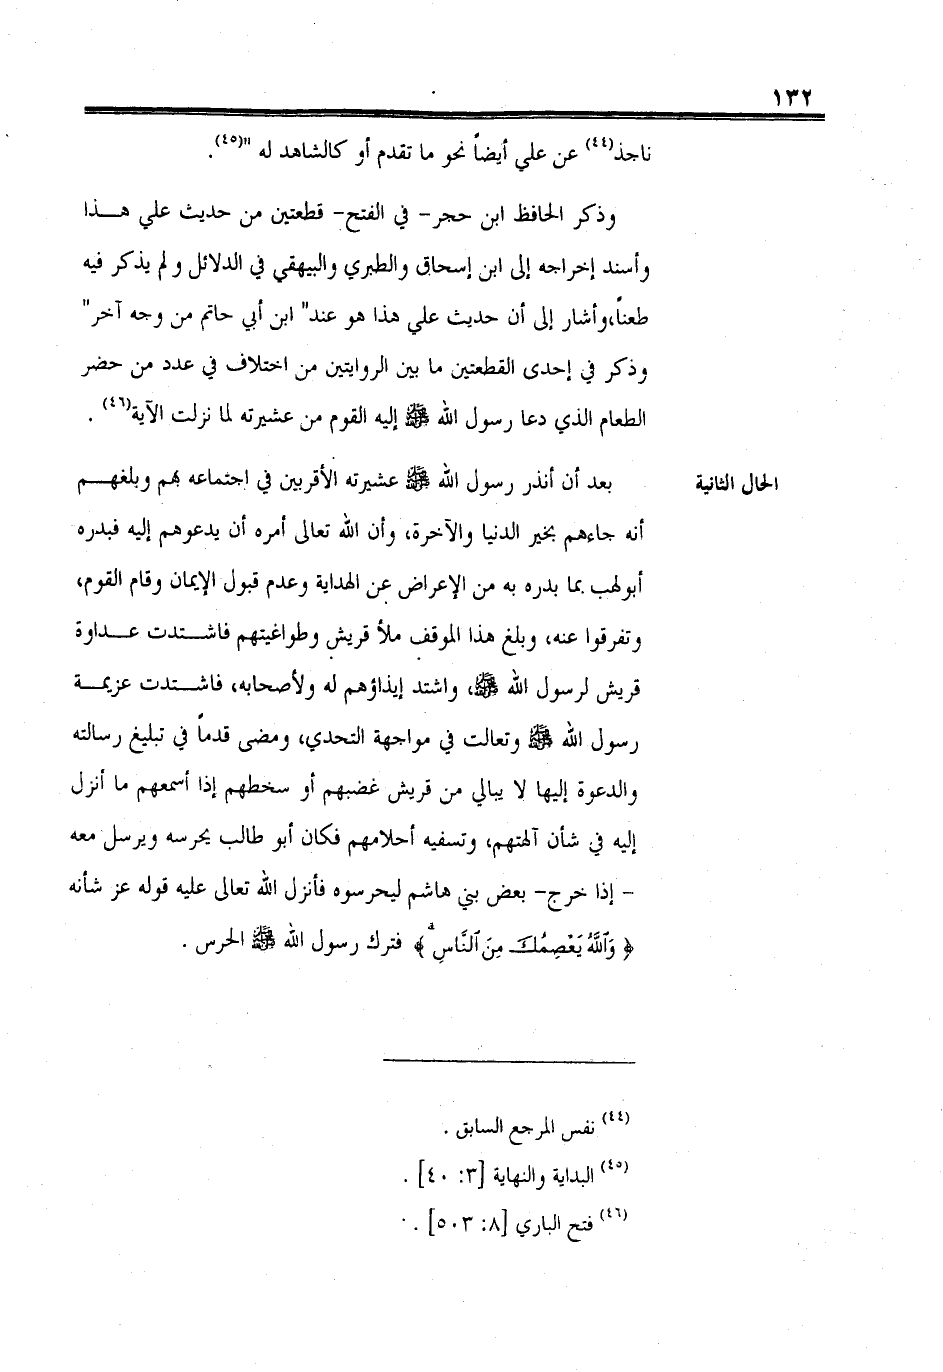 ١٣٢
ناجذ(٤٤) عن علي أيضاً نحو ما تقدم أو كالشاهد له "(٤٥).
وذكر الحافظ ابن حجر– في الفتح– قطعتين من حديث علي هـــذا
وأسند إخراجه إلى ابن إسحاق والطبري والبيهقي في الدلائل و لم يذكر فيه
طعناً،وأشار إلى أن حديث علي هذا هو عند" ابن أبي حاتم من وجه آخر"
وذكر في إحدى القطعتين ما بين الروايتين من اختلاف في عدد من حضر
الطعام الذي دعا رسول الله ﷺ إليه القوم من عشيرته لما نزلت الآية(٤٦) .
الحال الثانية
بعد أن أنذر رسول الله ﷺ عشيرته الأقربين في اجتماعه بهم وبلغهـــم
أنه جاءهم بخير الدنيا والآخرة، وأن الله تعالى أمره أن يدعوهم إليه فبدره
أبولهب بما بدره به من الإعراض عن الهداية وعدم قبول الإيمان وقام القوم،
وتفرقوا عنه، وبلغ هذا الموقف ملأ قريش وطواغيتهم فاشـــتدت عـــداوة
قريش لرسول الله ﷺ، واشتد إيذاؤهم له ولأصحابه، فاشـــتدت عزيمـــة
رسول الله ﷺ وتعالت في مواجهة التحدي، ومضى قدماً في تبليغ رسالته
والدعوة إليها لا يبالي من قريش غضبهم أو سخطهم إذا أسمعهم ما أنزل
إليه في شأن آلهتهم، وتسفيه أحلامهم فكان أبو طالب يحرسه ويرسل معه
– إذا خرج– بعض بني هاشم ليحرسوه فأنزل الله تعالى عليه قوله عز شأنه
﴿ وَٱللَّهُ يَعْصِمُكَ مِنَ ٱلنَّاسِ ۚ ﴾ فترك رسول الله ﷺ الحرس .
(٤٤) نفس المرجع السابق .
(٤٥) البداية والنهاية [٣: ٤٠] .
(٤٦) فتح الباري [٨: ٥٠٣] .